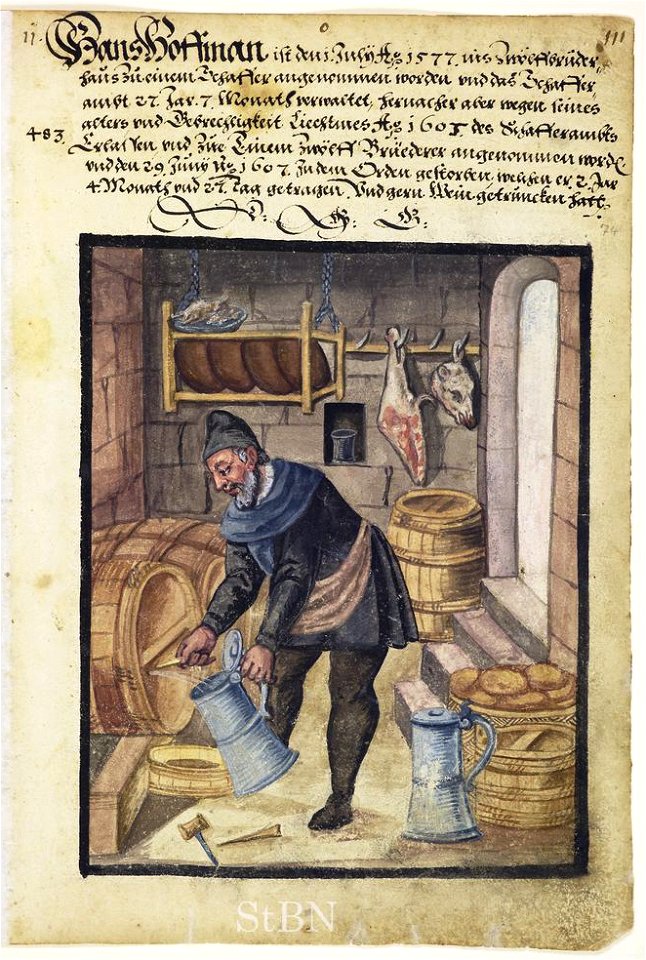 11. 0 111
Hans Hoffman ist den 1. July Aō 1577. ins Zwölffbrüder,
haus zu einem Schaffer angenommen worden vnd das Schaffer,
ambt 27. Jar. 7. Monath verwaltet, hernacher aber wegen seines
483 alters vnd Gebrechligkeit Liechtmes Aō 1605 des Schafferambts
Erlassen vnd zue Einem Zwölff Brüederer angenommen word
vnd den 29 Juny Aō 1607. Jn dem Orden gestorben, welchen er. 2. Jar
4. Monath vnd 27. Tag getragen. Vnd gern Wein getruncken hatt.
74
StBN